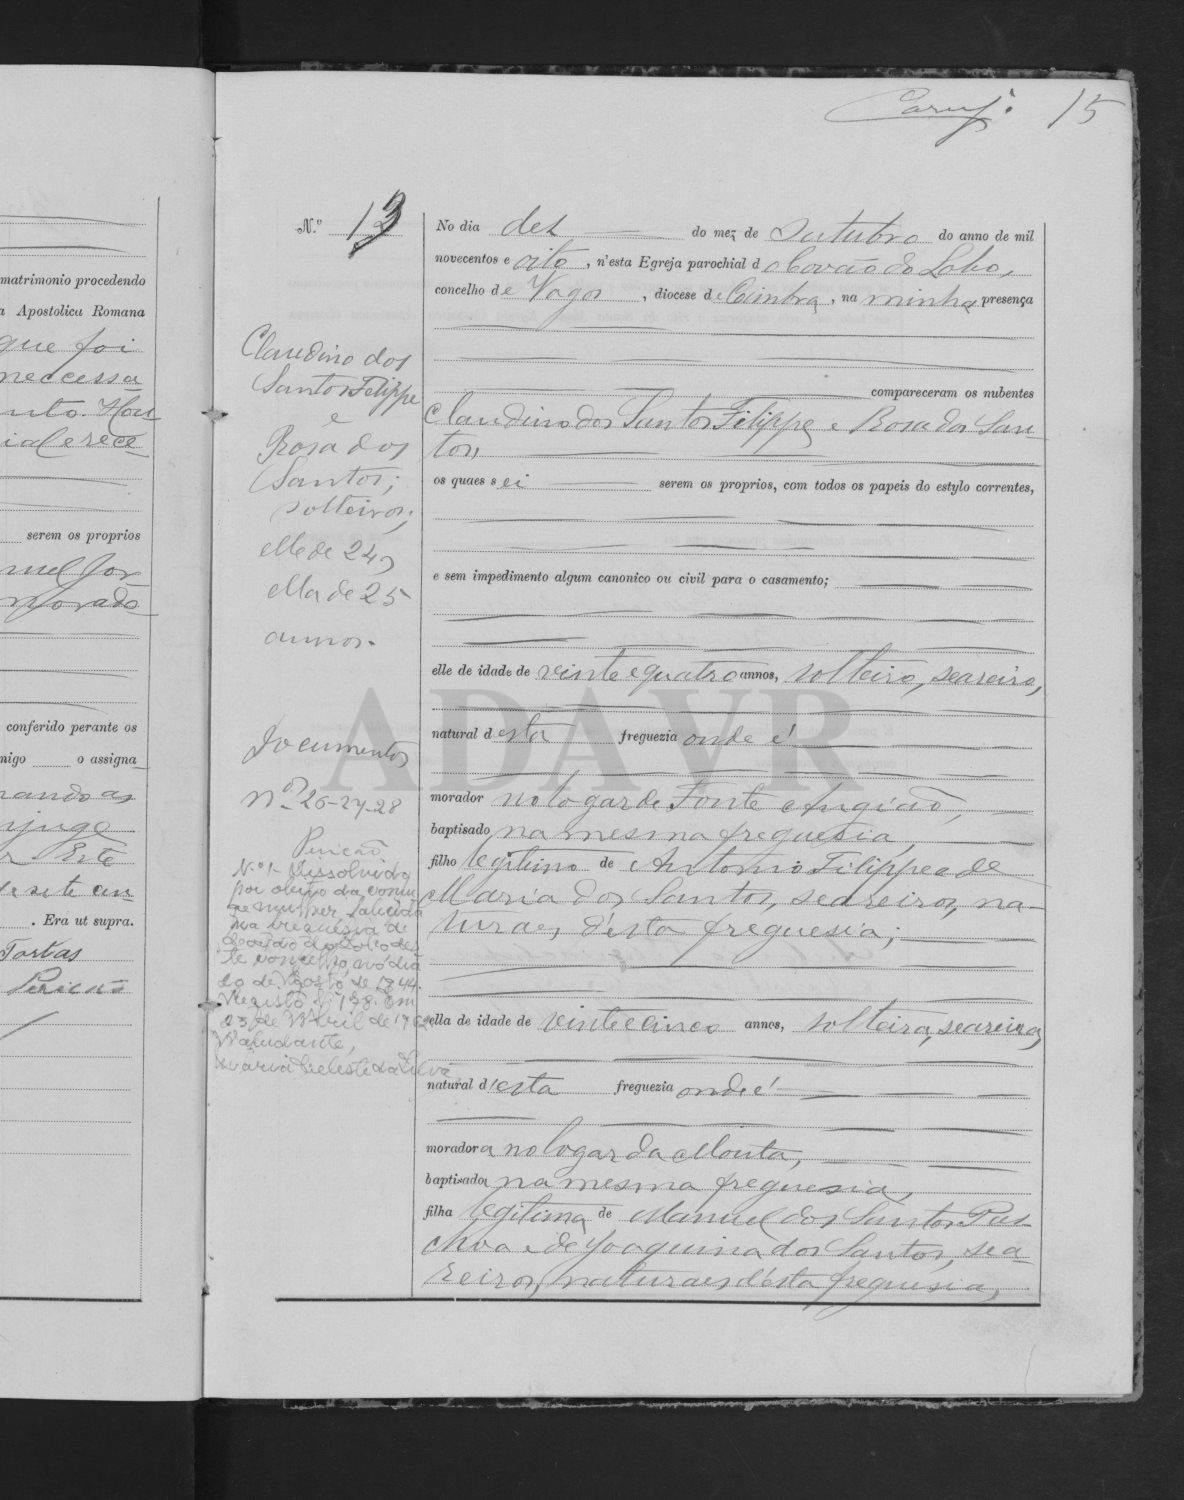 15
matrimonio procedendo
a Apostolica Romana
que foi
neccessa
serem os proprios
morado
conferido perante os
migo o assigna
onjuge
Este
de sete cen
. Era ut supra.
N.º 13
Claudino dos
Santos Filippe
e
Rosa dos
Santos;
solteiros;
elle de 24,
ella de 25
annos.
Documentos
Nos 26-27-28
N.º 1 - Dissolvido
por obito da conju
ge mulher, falecida
na freguesia de
Covão do Lobo des
te concelho, no dia
20 de Agosto de 1944.
Registo n.º 138. Em
23 de Abril de
Ajudante,
Maria Celeste da Silva
No dia dez do mez de outubro do anno de mil
novecentos e oito, n'esta Egreja parochial do Covão do Lobo,
concelho de Vagos, diocese de Coimbra, na minha presença
compareceram os nubentes
Claudino dos Santos Filippe e Rosa dos San-
tos,
os quaes sei serem os proprios, com todos os papeis do estylo correntes,
e sem impedimento algum canonico ou civil para o casamento;
elle de idade de vinte e quatro annos, solteiro, seareiro,
natural d'esta freguezia onde é
morador no logar de Fonte
baptisado na mesma freguesia
filho legitimo de Antonio Filippe e de
Maria dos Santos, seareiros, na-
turaes d'esta freguesia;
ella de idade de vinte e cinco annos, solteira, seareira,
natural d'esta freguezia onde é
moradora no logar da Mouta,
baptisada na mesma freguesia,
filha legitima de Manuel dos Santos Pas-
choa e de Joaquina dos Santos, sea-
reiros, naturaes d'esta freguesia,
ADAVR